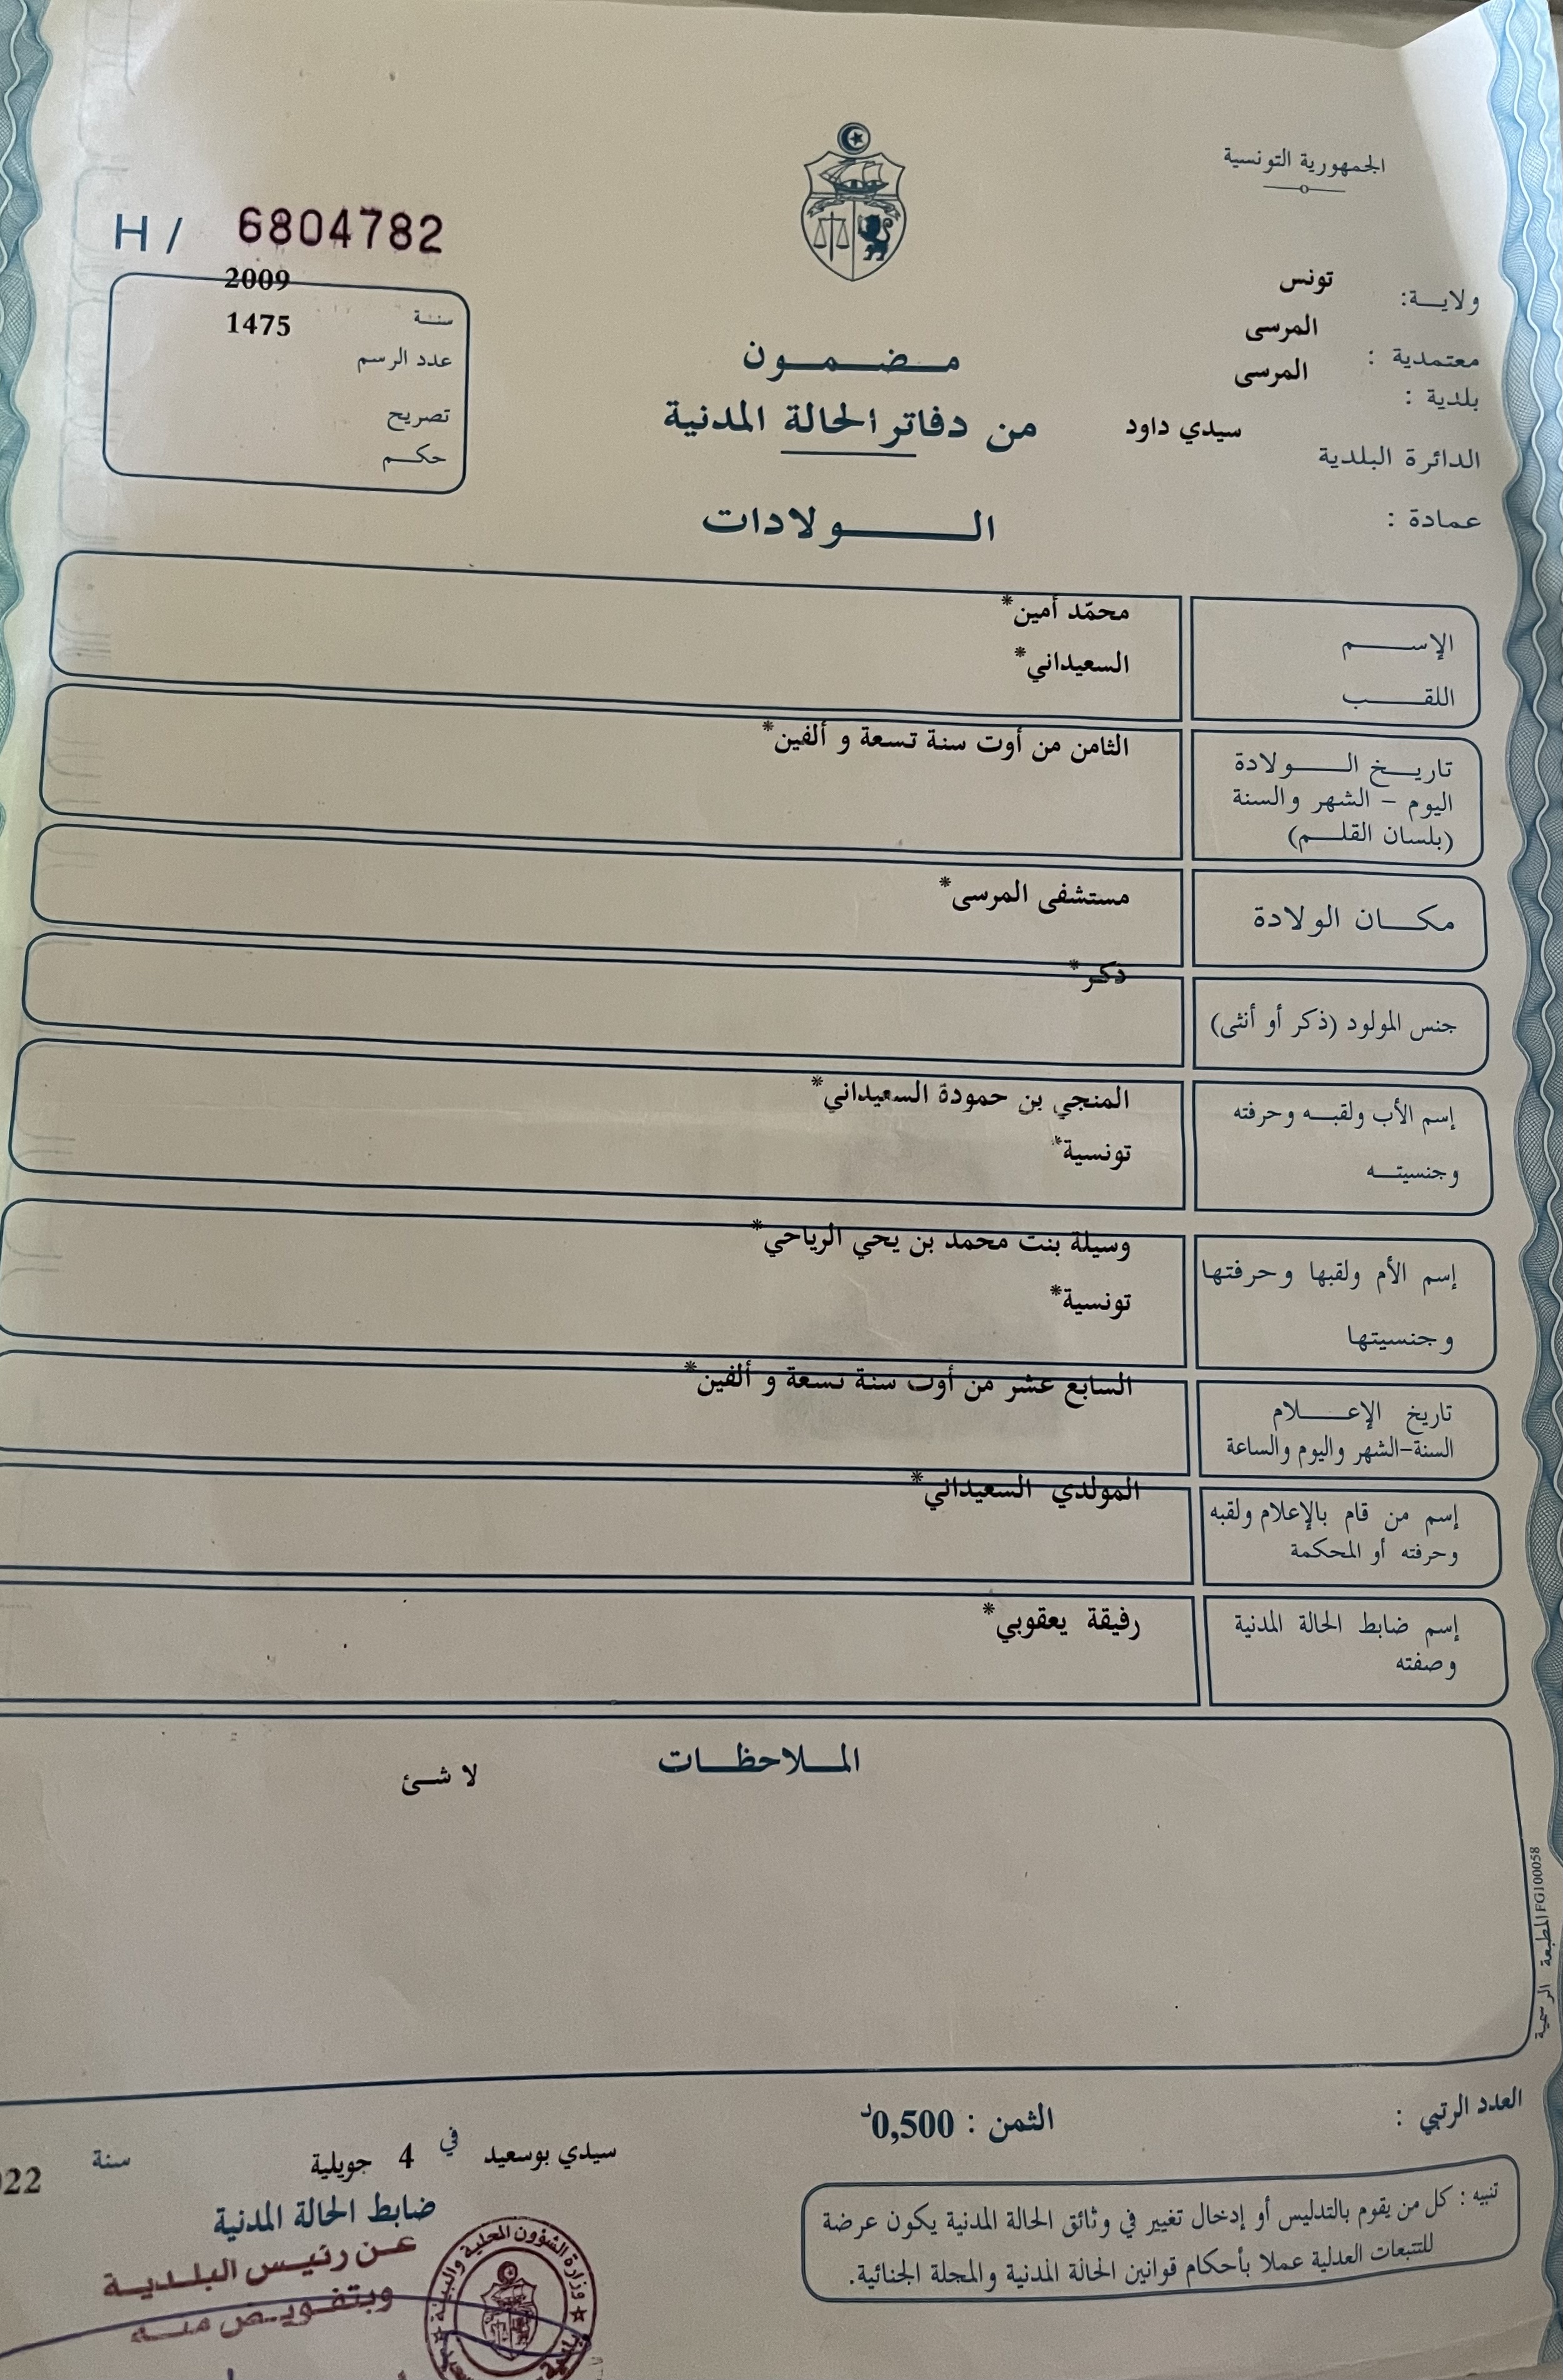 الجمهورية التونسية
H / 6804782
ولاية: تونس
معتمدية : المرسى
بلدية : المرسى
الدائرة البلدية سيدي داود
عمادة :
سنة 2009
عدد الرسم 1475
تصريح
حكم
مضمون
من دفاتر الحالة المدنية
الولادات
الإسم محمّد أمين*
اللقب السعيداني*
تاريخ الولادة الثامن من أوت سنة تسعة و ألفين*
اليوم - الشهر والسنة
(بلسان القلم)
مكان الولادة مستشفى المرسى*
جنس المولود (ذكر أو أنثى) ذكر*
إسم الأب ولقبه وحرفته المنجي بن حمودة السعيداني*
وجنسيته تونسية*
إسم الأم ولقبها وحرفتها وسيلة بنت محمد بن يحي الرياحي*
وجنسيتها تونسية*
تاريخ الإعلام السابع عشر من أوت سنة تسعة و ألفين*
السنة-الشهر واليوم والساعة
إسم من قام بالإعلام ولقبه المولدي السعيداني*
وحرفته أو المحكمة
إسم ضابط الحالة المدنية رفيقة يعقوبي*
وصفته
الملاحظات
لا شئ
المطبعة الرسمية FG100058
العدد الرتبي :
الثمن : 0,500د
سيدي بوسعيد في 4 جويلية سنة 022
ضابط الحالة المدنية
عن رئيس البلدية
وبتفويض منه
وزارة الشؤون المحلية والبيئة
تنبيه : كل من يقوم بالتدليس أو إدخال تغيير في وثائق الحالة المدنية يكون عرضة
للتتبعات العدلية عملا بأحكام قوانين الحالة المدنية والمجلة الجنائية.